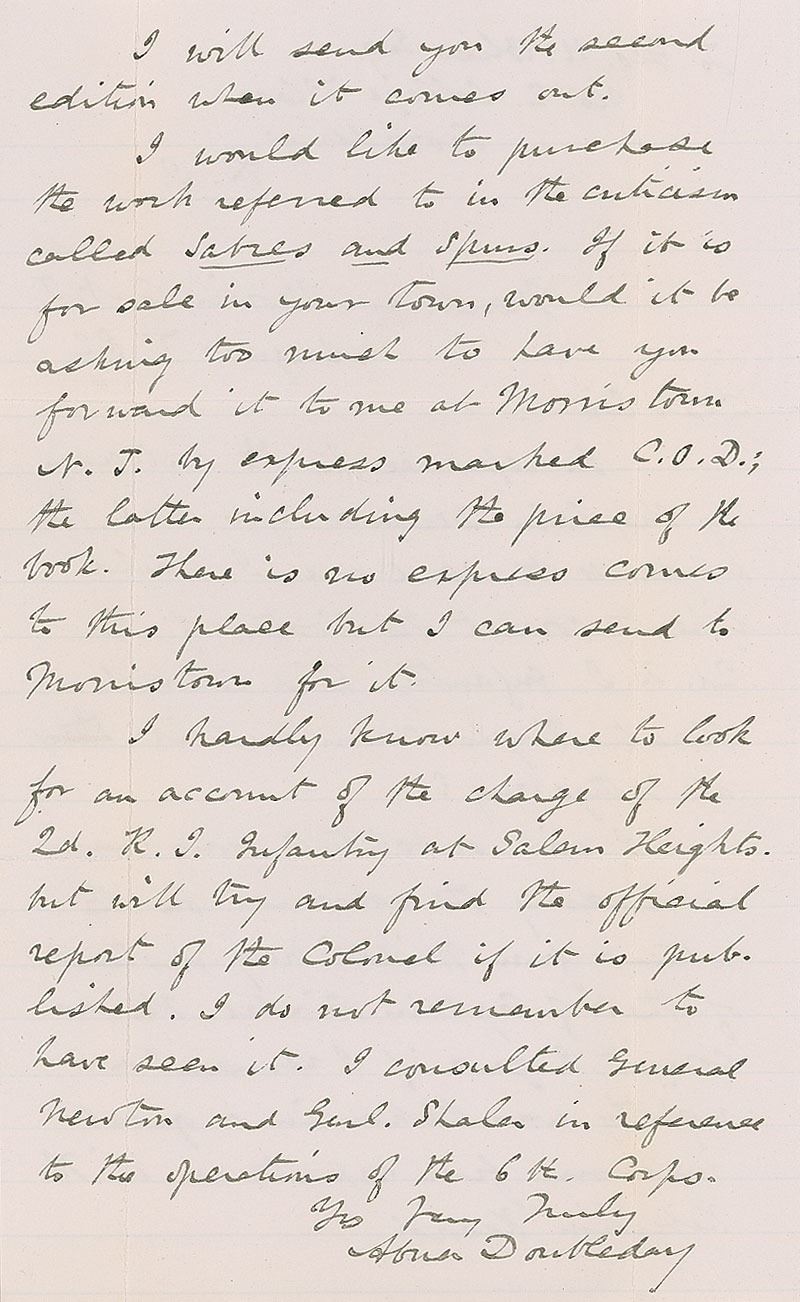 I will send you the second
edition when it comes out.
I would like to purchase
the work referred to in the criticism
called Sabres and Spurs. If it is
for sale in your town, would it be
asking too much to have you
forward it to me at Morristown
N. J. by express marked C.O.D.;
the latter including the price of the
book. There is no express comes
to this place but I can send to
Morristown for it.
I hardly know where to look
for an account of the charge of the
2d. R. I. Infantry at Salem Heights.
but will try and find the official
report of the Colonel if it is pub-
lished. I do not remember to
have seen it. I consulted General
Newton and Genl. Shaler in reference
to the operations of the 6th. Corps.
Yrs Very Truly
Abner Doubleday